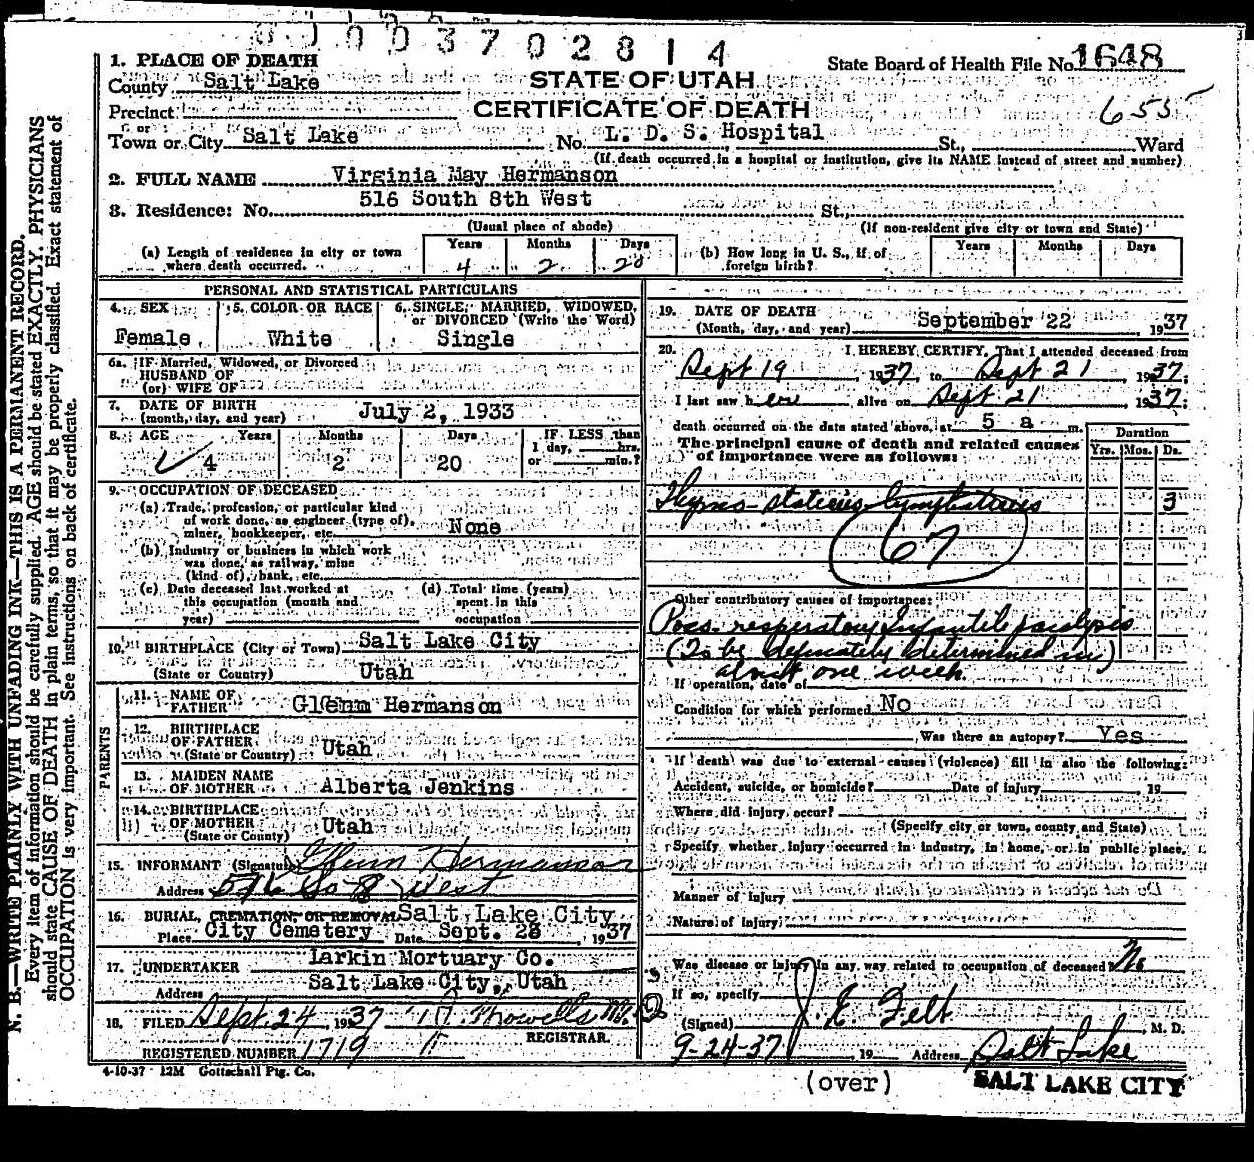 0 1 0 0 3 7 0 2 8 1 4
State Board of Health File No. 1648
STATE OF UTAH
CERTIFICATE OF DEATH
655
1. PLACE OF DEATH
County Salt Lake
Precinct
or
Town or City Salt Lake No. L. D. S. Hospital St., Ward
(If death occurred in a hospital or institution, give its NAME instead of street and number)
2. FULL NAME Virginia May Hermanson
3. Residence: No. 516 South 8th West St.,
(Usual place of abode) (If non-resident give city or town and State)
(a) Length of residence in city or town where death occurred. Years 4 Months 2 Days 20
(b) How long in U. S., if of foreign birth? Years Months Days
PERSONAL AND STATISTICAL PARTICULARS
4. SEX Female
5. COLOR OR RACE White
6. SINGLE, MARRIED, WIDOWED, or DIVORCED (Write the Word) Single
6a. IF Married, Widowed, or Divorced
HUSBAND OF
(or) WIFE OF
7. DATE OF BIRTH
(month, day, and year) July 2, 1933
8. AGE Years 4 Months 2 Days 20
IF LESS than
1 day, hrs.
or min.?
9. OCCUPATION OF DECEASED
(a) Trade, profession, or particular kind
of work done, as engineer (type of),
miner, bookkeeper, etc. None
(b) Industry or business in which work
was done, as railway, mine
(kind of), bank, etc.
(c) Date deceased last worked at
this occupation (month and
year)
(d) Total time (years)
spent in this
occupation
10. BIRTHPLACE (City or Town) Salt Lake City
(State or Country) Utah
PARENTS
11. NAME OF
FATHER Glenn Hermanson
12. BIRTHPLACE
OF FATHER
(State or Country) Utah
13. MAIDEN NAME
OF MOTHER Alberta Jenkins
14. BIRTHPLACE
OF MOTHER
(State or County) Utah
15. INFORMANT (Signature) Glenn Hermanson
Address 516 So 8 West
16. BURIAL, CREMATION, OR REMOVAL Salt Lake City
Place City Cemetery Date Sept. 23, 1937
17. UNDERTAKER Larkin Mortuary Co.
Address Salt Lake City, Utah
18. FILED Sept. 24, 1937
REGISTRAR.
REGISTERED NUMBER 1719
4-10-37 12M Gottschall Ptg. Co.
19. DATE OF DEATH
(Month, day, and year) September 22, 1937
20. I HEREBY CERTIFY, That I attended deceased from
Sept 19, 1937, to Sept 21, 1937.
I last saw her alive on Sept 21, 1937.
death occurred on the date stated above, at 5 a m.
The principal cause of death and related causes
of importance were as follows:
Duration
Yrs. Mos. Ds.
Thymo-staticus lymphaticus 3
67
Other contributory causes of importance:
Poss. respiratory Infantile paralysis
(To be definately determined in)
about one week.
If operation, date of
Condition for which performed No
Was there an autopsy? Yes
If death was due to external causes (violence) fill in also the following:
Accident, suicide, or homicide? Date of injury , 19
Where did injury occur?
(Specify city or town, county and State)
Specify whether injury occurred in industry, in home, or in public place.
Manner of injury
Nature of injury
Was disease or injury in any way related to occupation of deceased No
If so, specify
(Signed) J. E. Felt, M. D.
9-24-37, 19 Address Salt Lake
(over) SALT LAKE CITY
N. B.—WRITE PLAINLY WITH UNFADING INK—THIS IS A PERMANENT RECORD.
Every item of information should be carefully supplied. AGE should be stated EXACTLY. PHYSICIANS
should state CAUSE OF DEATH in plain terms, so that it may be properly classified. Exact statement of
OCCUPATION is very important. See instructions on back of certificate.